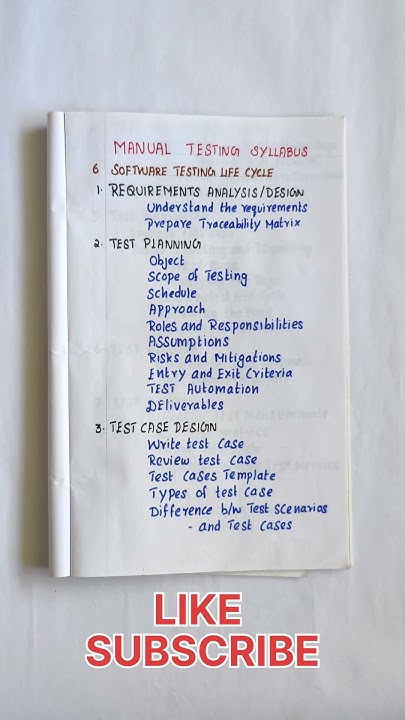 MANUAL TESTING SYLLABUS
6 SOFTWARE TESTING LIFE CYCLE
1. REQUIREMENTS ANALYSIS/DESIGN
Understand the requirements
Prepare Traceability Matrix
2. TEST PLANNING
Object
Scope of Testing
Schedule
Approach
Roles and Responsibilities
Assumptions
Risks and Mitigations
Entry and Exit Criteria
TEST Automation
Deliverables
3. TEST CASE DESIGN
Write test case
Review test case
Test cases Template
Types of test case
Difference b/w Test Scenarios
- and Test cases
LIKE
SUBSCRIBE